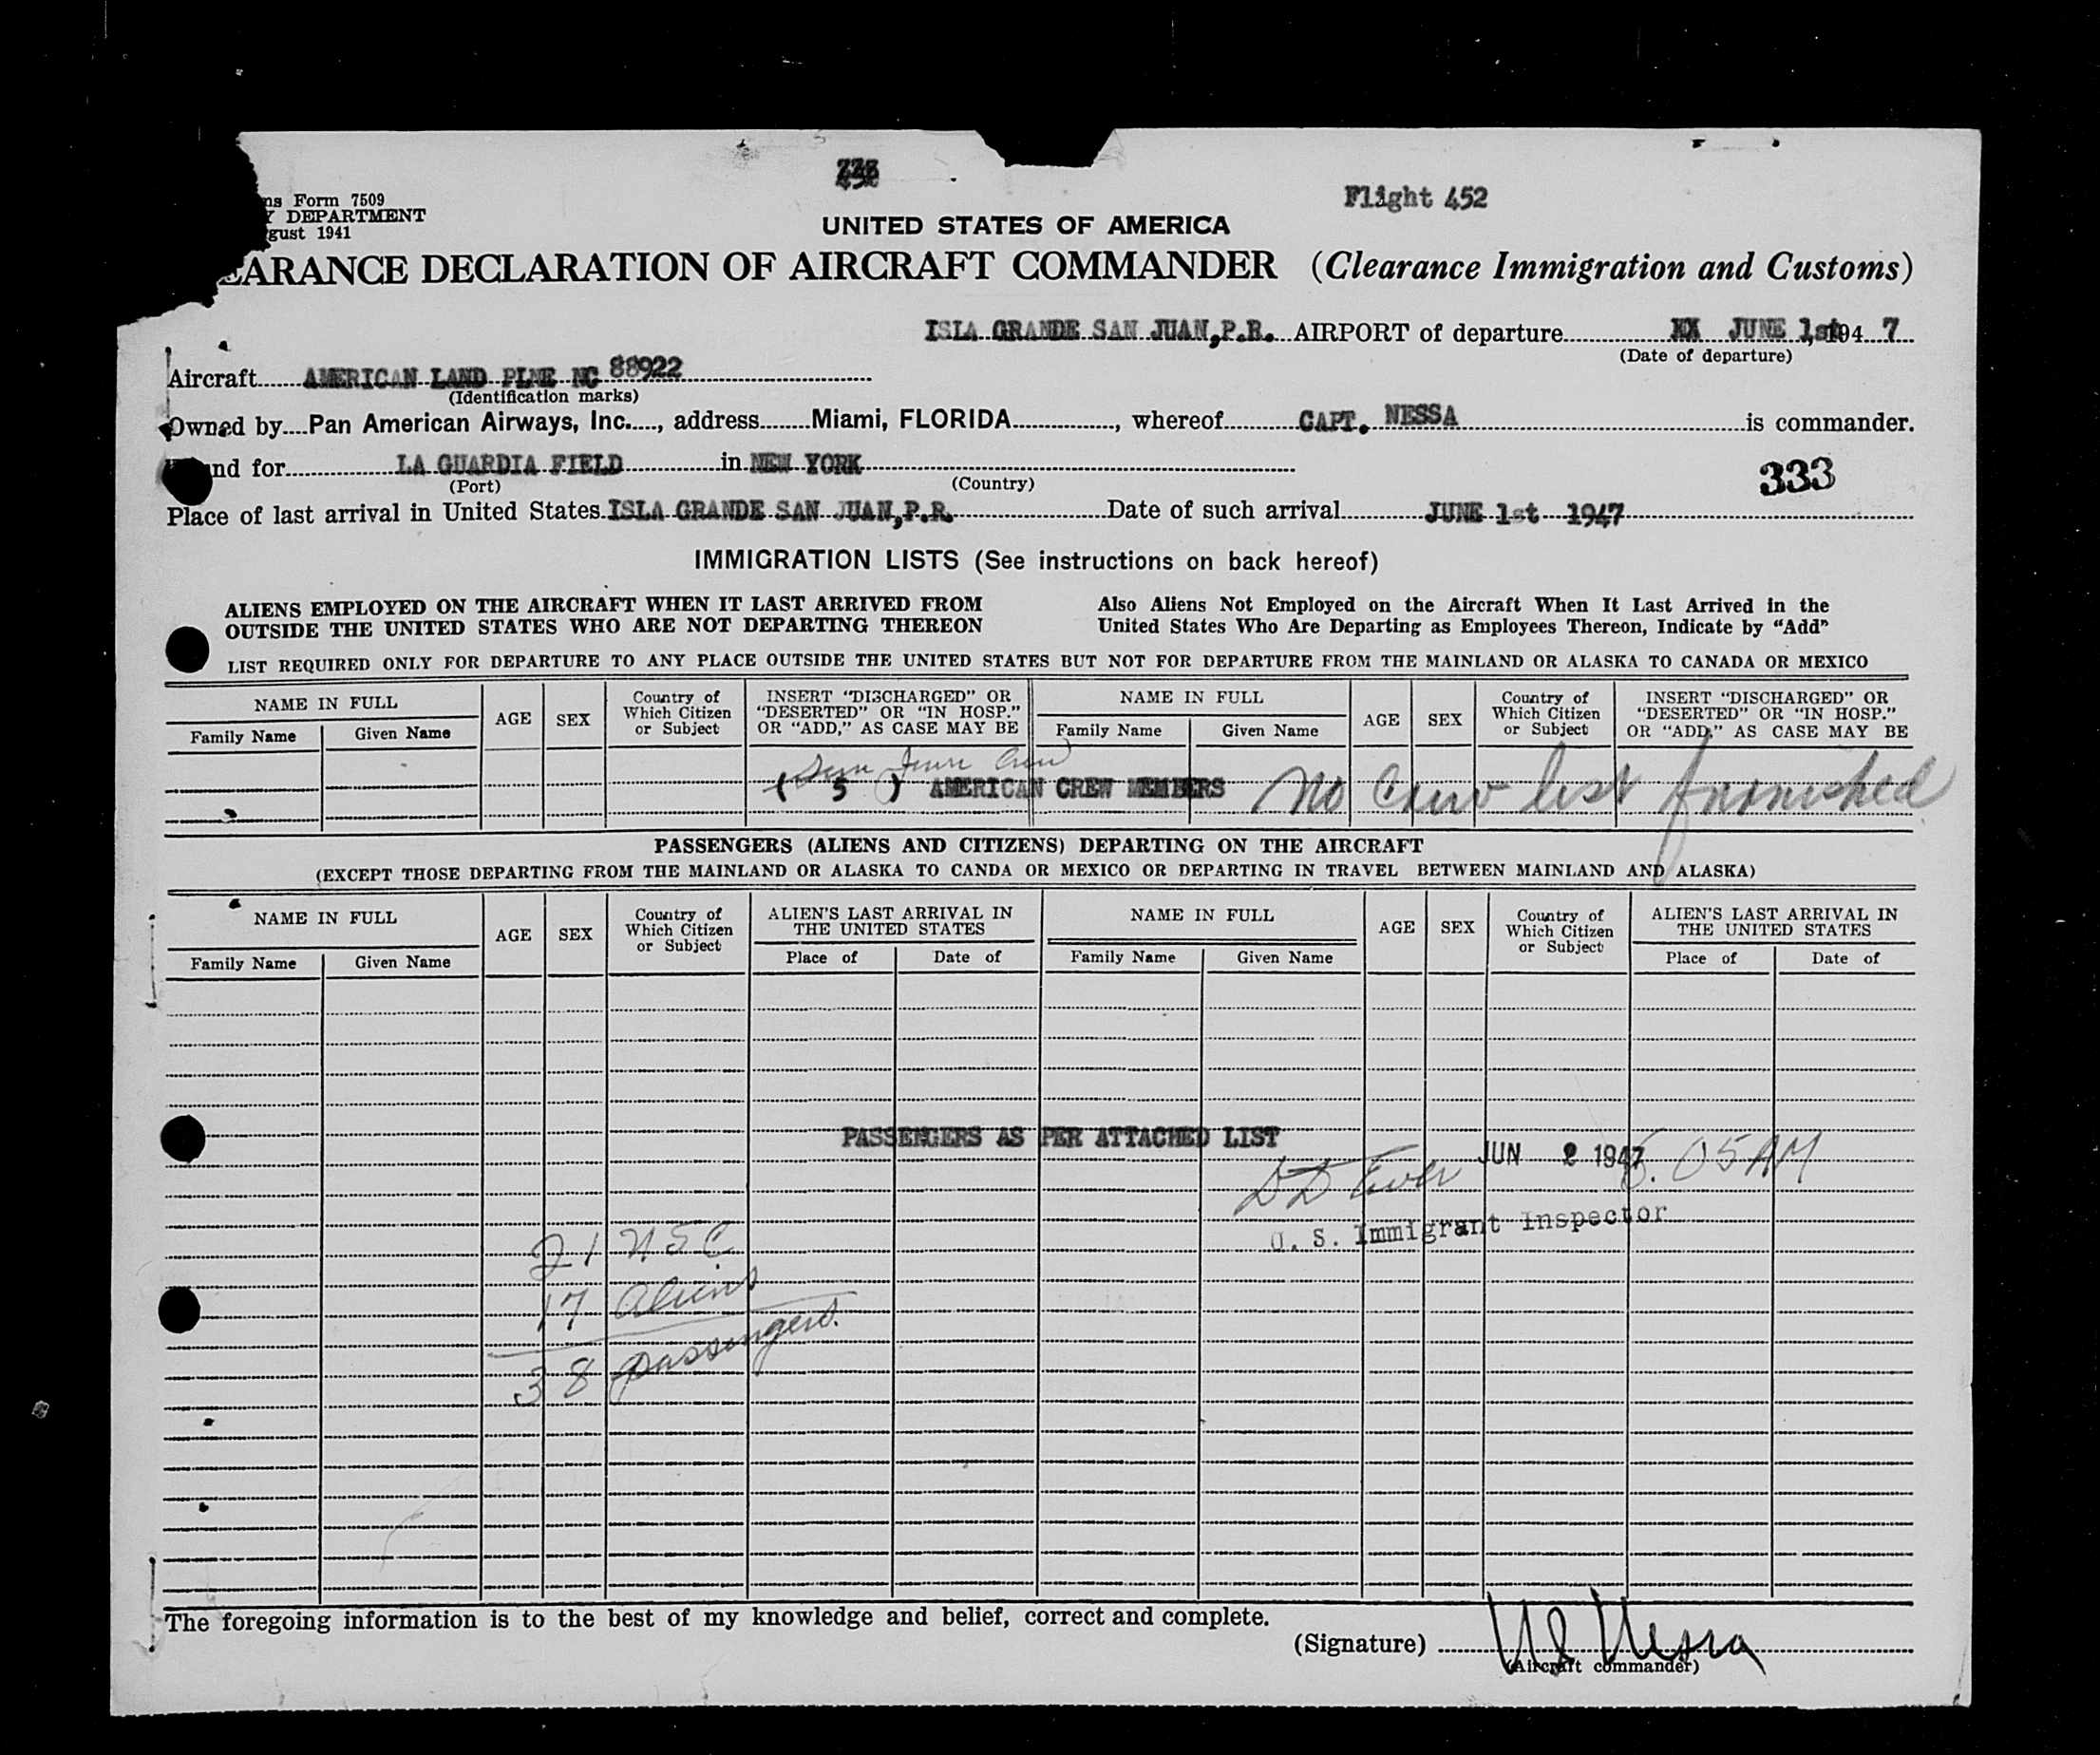 ns Form 7509
Y DEPARTMENT
gust 1941
Flight 452
UNITED STATES OF AMERICA
EARANCE DECLARATION OF AIRCRAFT COMMANDER (Clearance Immigration and Customs)
ISLA GRANDE SAN JUAN,P.R. AIRPORT of departure XX JUNE 1st, 194 7
(Date of departure)
Aircraft AMERICAN LAND PLNE NC 88922
(Identification marks)
Owned by Pan American Airways, Inc., address Miami, FLORIDA, whereof CAPT. NESSA is commander.
nd for LA GUARDIA FIELD in NEW YORK
(Port) (Country)
333
Place of last arrival in United States ISLA GRANDE SAN JUAN,P.R. Date of such arrival JUNE 1st 1947
IMMIGRATION LISTS (See instructions on back hereof)
ALIENS EMPLOYED ON THE AIRCRAFT WHEN IT LAST ARRIVED FROM
OUTSIDE THE UNITED STATES WHO ARE NOT DEPARTING THEREON
Also Aliens Not Employed on the Aircraft When It Last Arrived in the
United States Who Are Departing as Employees Thereon, Indicate by "Add"
LIST REQUIRED ONLY FOR DEPARTURE TO ANY PLACE OUTSIDE THE UNITED STATES BUT NOT FOR DEPARTURE FROM THE MAINLAND OR ALASKA TO CANADA OR MEXICO
NAME IN FULL
Family Name Given Name
AGE
SEX
Country of
Which Citizen
or Subject
INSERT "DISCHARGED" OR
"DESERTED" OR "IN HOSP."
OR "ADD," AS CASE MAY BE
NAME IN FULL
Family Name Given Name
AGE
SEX
Country of
Which Citizen
or Subject
INSERT "DISCHARGED" OR
"DESERTED" OR "IN HOSP."
OR "ADD," AS CASE MAY BE
San Juan Crew
( 5 ) AMERICAN CREW MEMBERS No Crew list furnished
PASSENGERS (ALIENS AND CITIZENS) DEPARTING ON THE AIRCRAFT
(EXCEPT THOSE DEPARTING FROM THE MAINLAND OR ALASKA TO CANDA OR MEXICO OR DEPARTING IN TRAVEL BETWEEN MAINLAND AND ALASKA)
NAME IN FULL
Family Name Given Name
AGE
SEX
Country of
Which Citizen
or Subject
ALIEN'S LAST ARRIVAL IN
THE UNITED STATES
Place of Date of
NAME IN FULL
Family Name Given Name
AGE
SEX
Country of
Which Citizen
or Subject
ALIEN'S LAST ARRIVAL IN
THE UNITED STATES
Place of Date of
PASSENGERS AS PER ATTACHED LIST
JUN 2 1947 05 AM
U. S. Immigrant Inspector
21 USC
17 aliens
38 passengers.
The foregoing information is to the best of my knowledge and belief, correct and complete.
(Signature) Nessa
(Aircraft commander)